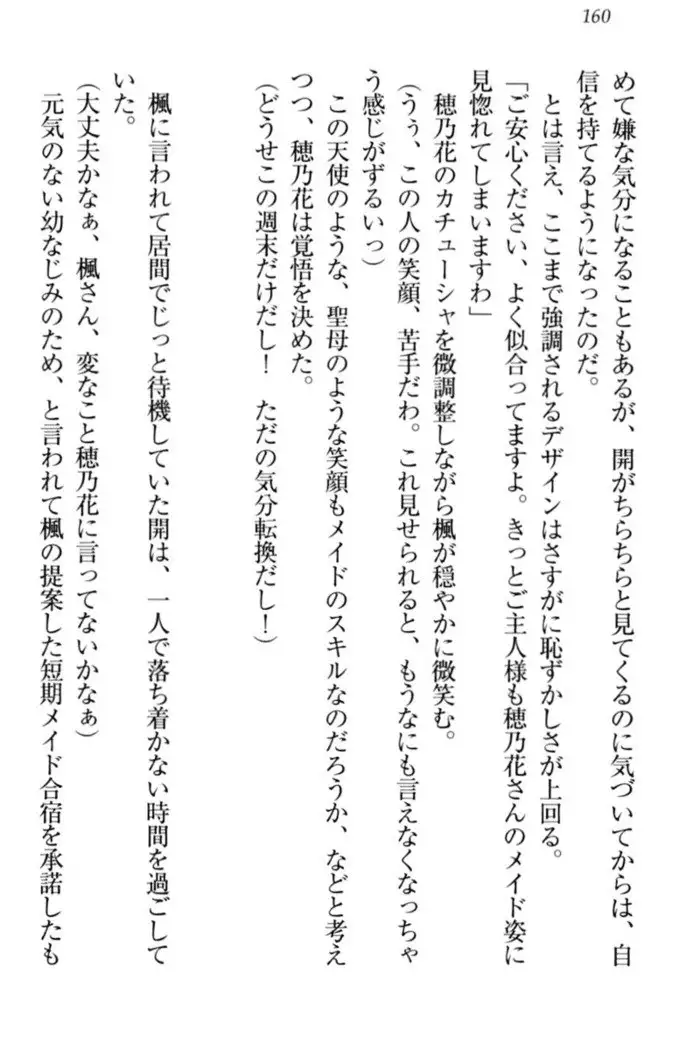 160
めて嫌な気分になることもあるが、開がちらちらと見てくるのに気づいてからは、自
信を持てるようになったのだ。
　とは言え、ここまで強調されるデザインはさすがに恥ずかしさが上回る。
「ご安心ください、よく似合ってますよ。きっとご主人様も穂乃花さんのメイド姿に
見惚れてしまいますわ」
　穂乃花のカチューシャを微調整しながら楓が穏やかに微笑む。
(うぅ、この人の笑顔、苦手だわ。これ見せられると、もうなにも言えなくなっちゃ
う感じがずるいっ)
　この天使のような、聖母のような笑顔もメイドのスキルなのだろうか、などと考え
つつ、穂乃花は覚悟を決めた。
(どうせこの週末だけだし！　ただの気分転換だし！)
　楓に言われて居間でじっと待機していた開は、一人で落ち着かない時間を過ごして
いた。
(大丈夫かなぁ、楓さん、変なこと穂乃花に言ってないかなぁ)
　元気のない幼なじみのため、と言われて楓の提案した短期メイド合宿を承諾したも